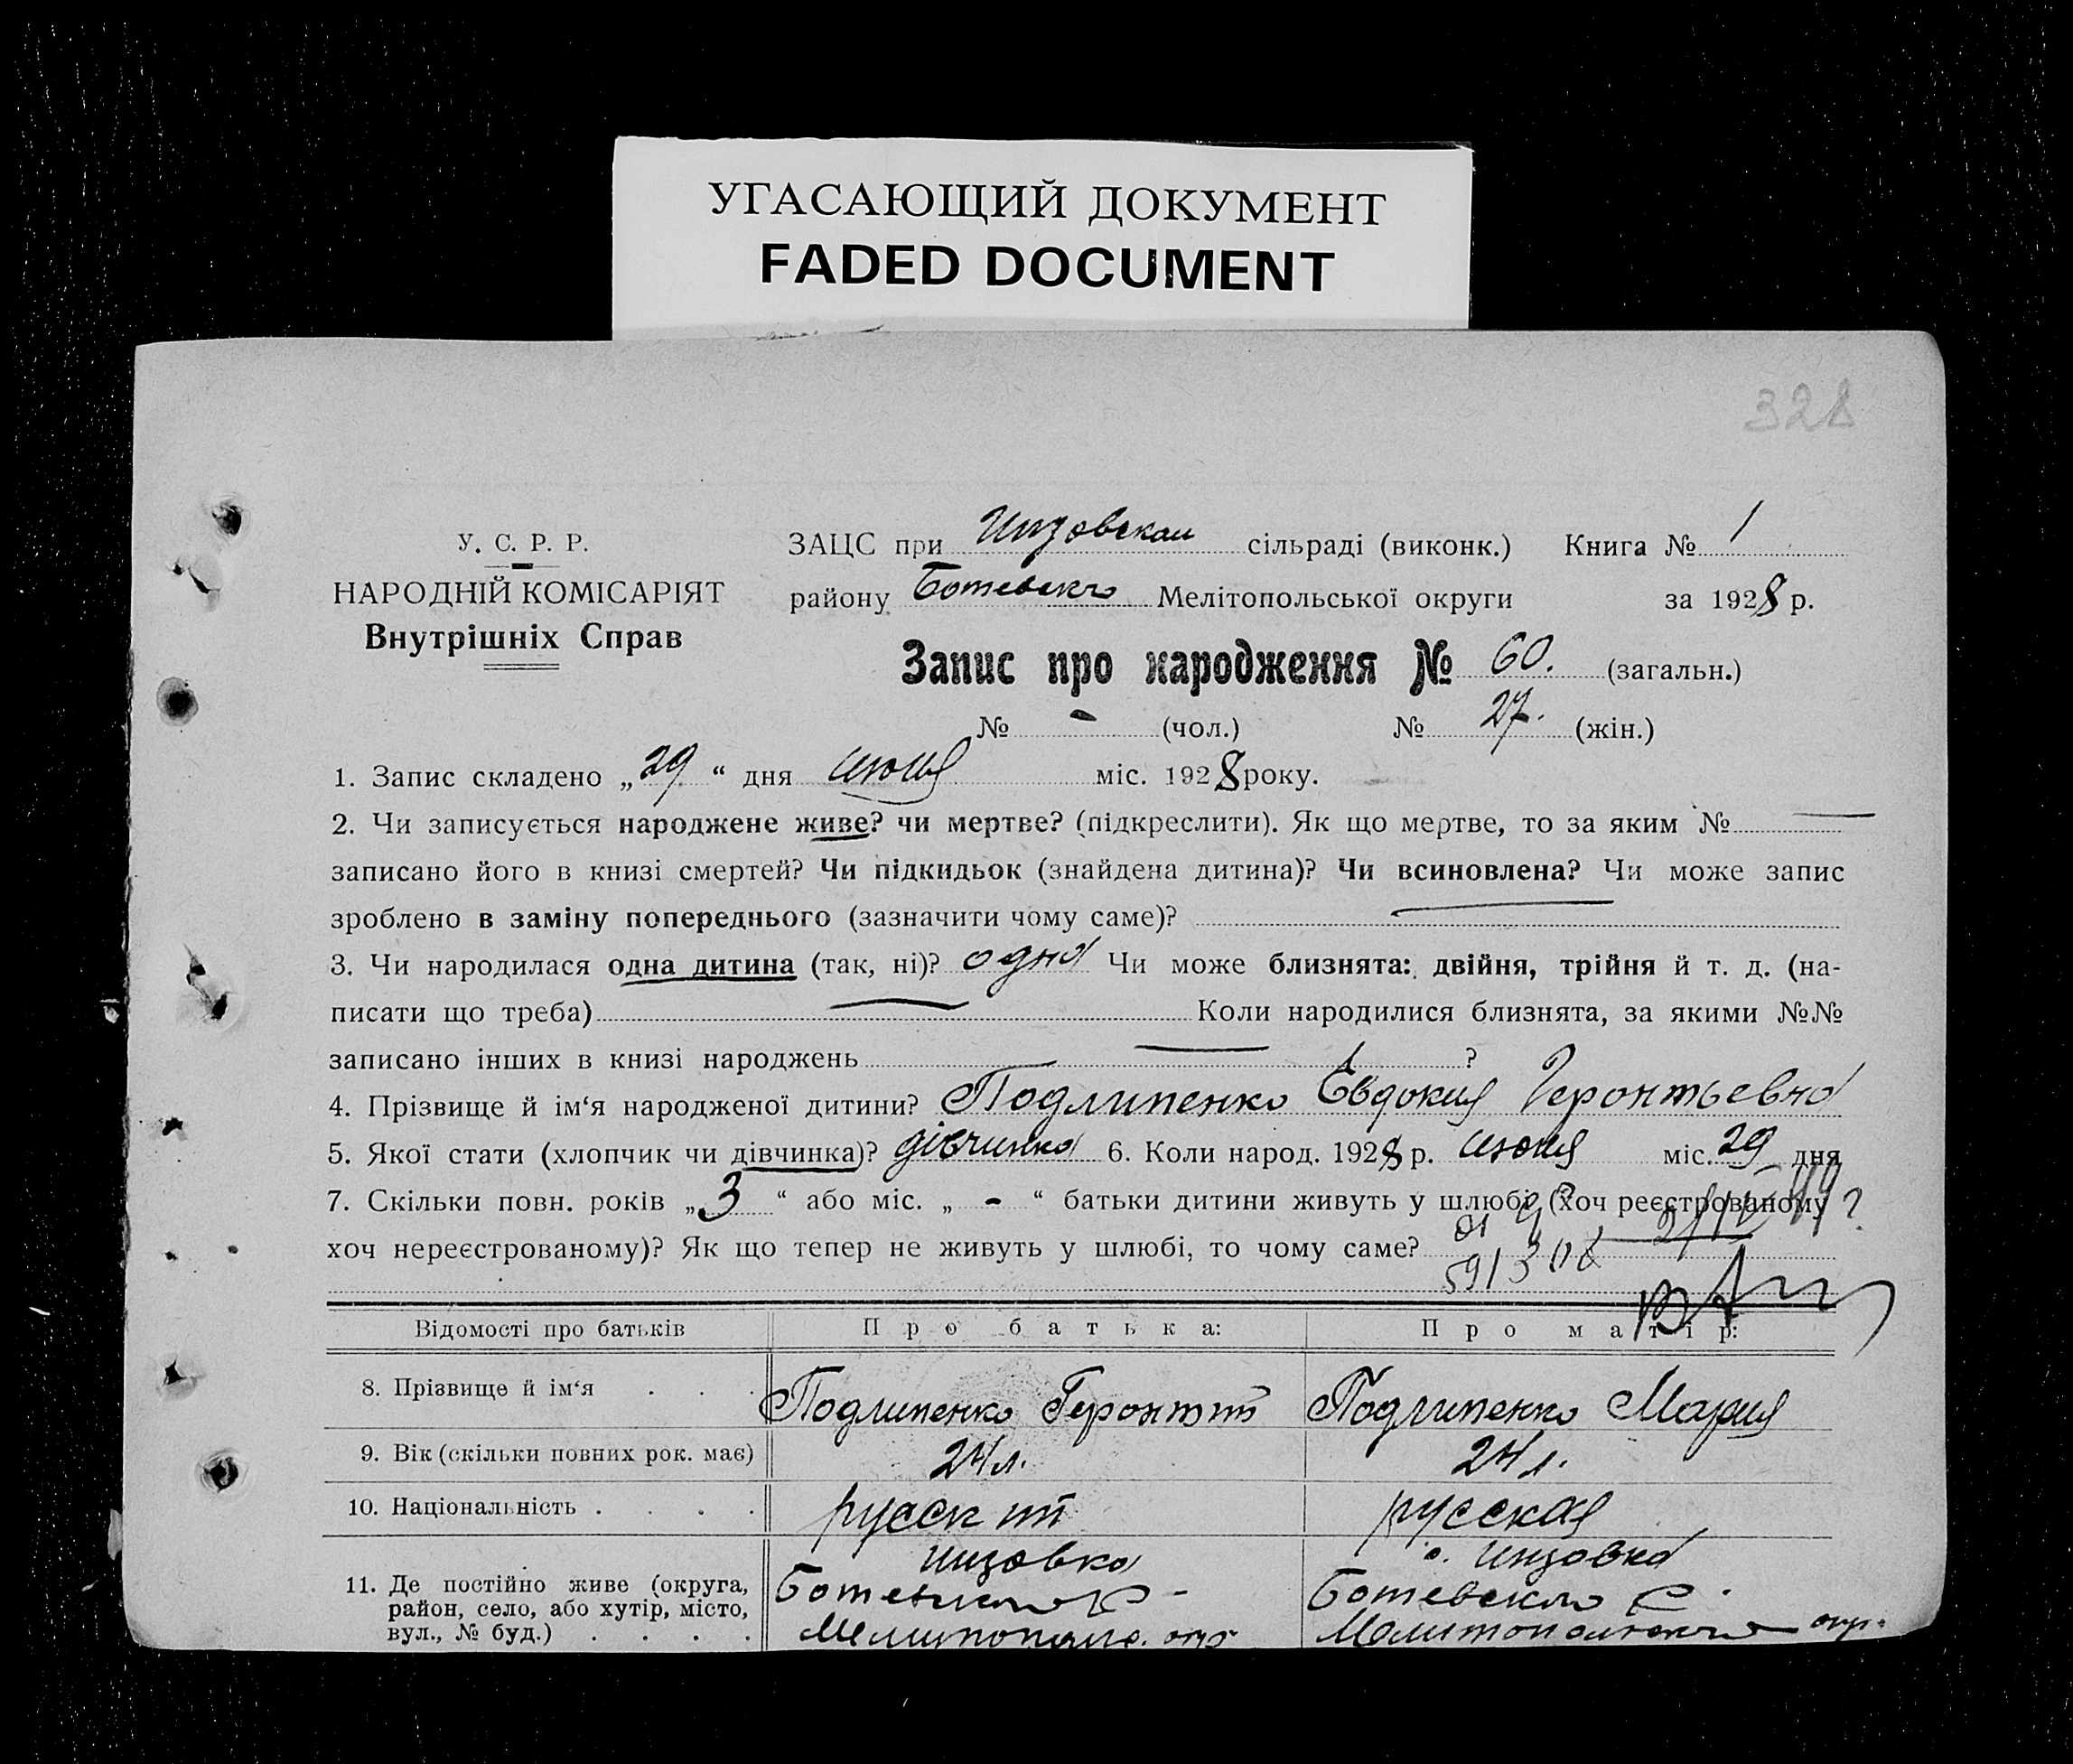 УГАСАЮЩИЙ ДОКУМЕНТ
FADED DOCUMENT
328
У. С. Р. Р.
НАРОДНІЙ КОМІСАРІЯТ
Внутрішніх Справ
ЗАЦС при Инзовской сільраді (виконк.) Книга № 1
району Ботевского Мелітопольської округи за 1928 р.
Запис про народження № 60. (загальн.)
№ - (чол.) № 27. (жін.)
1. Запис складено „29“ дня июня міс. 1928 року.
2. Чи записується народжене живе? чи мертве? (підкреслити). Як що мертве, то за яким №
записано його в книзі смертей? Чи підкидьок (знайдена дитина)? Чи всиновлена? Чи може запис
зроблено в заміну попереднього (зазначити чому саме)?
3. Чи народилася одна дитина (так, ні)? одна Чи може близнята: двійня, трійня й т. д. (на-
писати що треба) Коли народилися близнята, за якими №№
записано інших в книзі народжень ?
4. Прізвище й ім‘я народженої дитини? Подлипенко Евдокия Геронтьевна
5. Якої стати (хлопчик чи дівчинка)? дівчинка 6. Коли народ. 1928 р. июня міс. 29 дня
7. Скільки повн. років „3“ або міс. „-“ батьки дитини живуть у шлюбі (хоч реєстрованому
хоч нереєстрованому)? Як що тепер не живуть у шлюбі, то чому саме?
Відомості про батьків Про батька: Про матір:
8. Прізвище й ім‘я . . . Подлипенко Геронтий Подлипенко Мария
9. Вік (скільки повних рок. має) 24 л. 24 л.
10. Національність . . . . русский русская
11. Де постійно живе (округа,
район, село, або хутір, місто,
вул., № буд.) . . . .
Инзовка
Ботевского р-
Мелитопол. окр.
с. Инзовка
Ботевского р.
Мелитопольского окр.